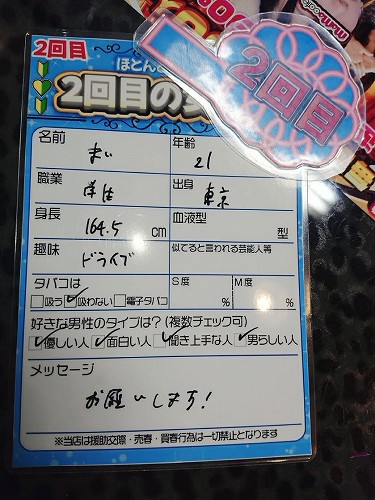 2回目
ほとん
2回目の
2回目
名前 まい
年齢 21
職業 学生
出身 東京
身長 164.5 cm
血液型 型
趣味 ドライブ
似てると言われる芸能人等
タバコは
吸う 吸わない 電子タバコ
S度 %
M度 %
好きな男性のタイプは?(複数チェック可)
優しい人 面白い人 聞き上手な人 男らしい人
メッセージ
お願いします!
※当店は援助交際・売春・買春行為は一切禁止となります